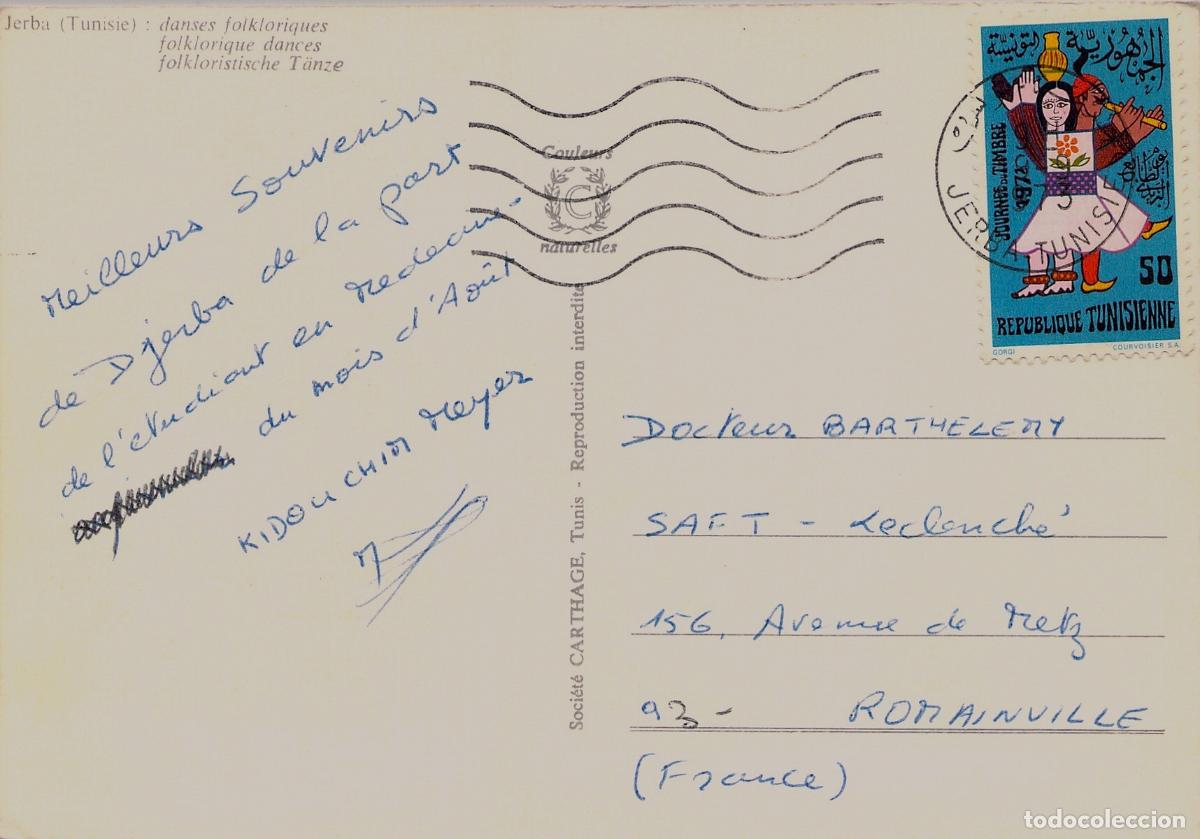 Jerba (Tunisie) : danses folkloriques
folklorique dances
folkloristische Tänze
Meilleurs Souvenirs
de Djerba de la part
de l'étudiant en Medecine
du mois d'Août
KIDOUCHIM Meyer
Couleurs
C
naturelles
Société CARTHAGE, Tunis - Reproduction interdite
الجمهورية التونسية
JOURNÉE DU TIMBRE
1973
JERBA TUNISIE
50
REPUBLIQUE TUNISIENNE
GORGI
COURVOISIER S.A.
Docteur BARTHELEMY
SAFT - Leclanché
156, Avenue de Metz
93 - ROMAINVILLE
(France)
todocoleccion